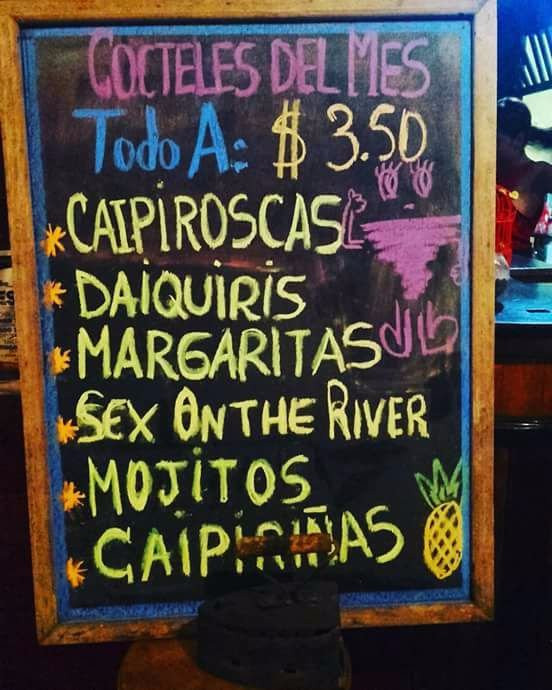 COCTELES DEL MES
TODO A: $ 3.50
CAIPIROSCAS
DAIQUIRIS
MARGARITAS
SEX ON THE RIVER
MOJITOS